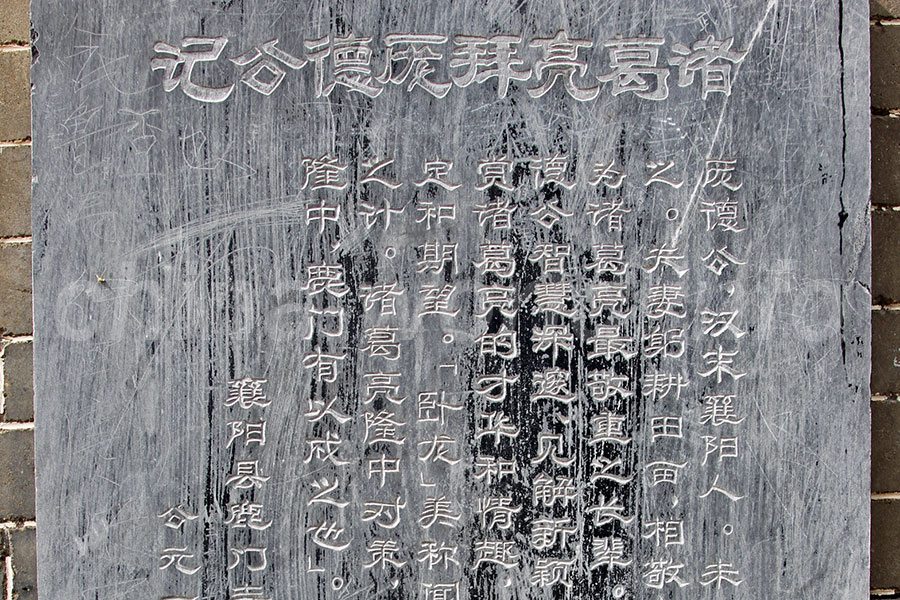 诸葛亮拜庞德公记
庞德公,汉末襄阳人。未
之。夫妻躬耕田亩,相敬
为诸葛亮最敬重之长辈。
德公智慧深邃、见解新颖
诸葛亮的才华和情趣,
定和期望。「卧龙」美称闻
之计。诸葛亮隆中对策,
隆中,鹿门有以成之也」。
襄阳县鹿门寺
公元一